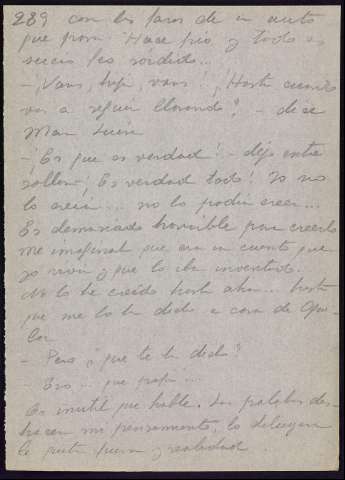 289 con los faros de un auto
que pasa. Hace frío y todo es
sucio, feo, sórdido...
- ¡Vamos, hija, vamos! ¿Hasta cuándo
vas a seguir llorando? - dice
- ¡Es que es verdad! - dijo entre
sollozos ¡Es verdad todo! Yo no
lo creía... no lo podía creer...
Es demasiado horrible para creerlo
me imaginaba que era un cuento que
yo vivía y que lo iba inventando.
No lo he creído hasta ahora... hasta
que me lo ha dicho a cara de
- Pero ¿que te ha dicho?
- Eso... que papá...
Es inútil que hable. Las palabras des-
hacen mi pensamiento, lo
y realidad.